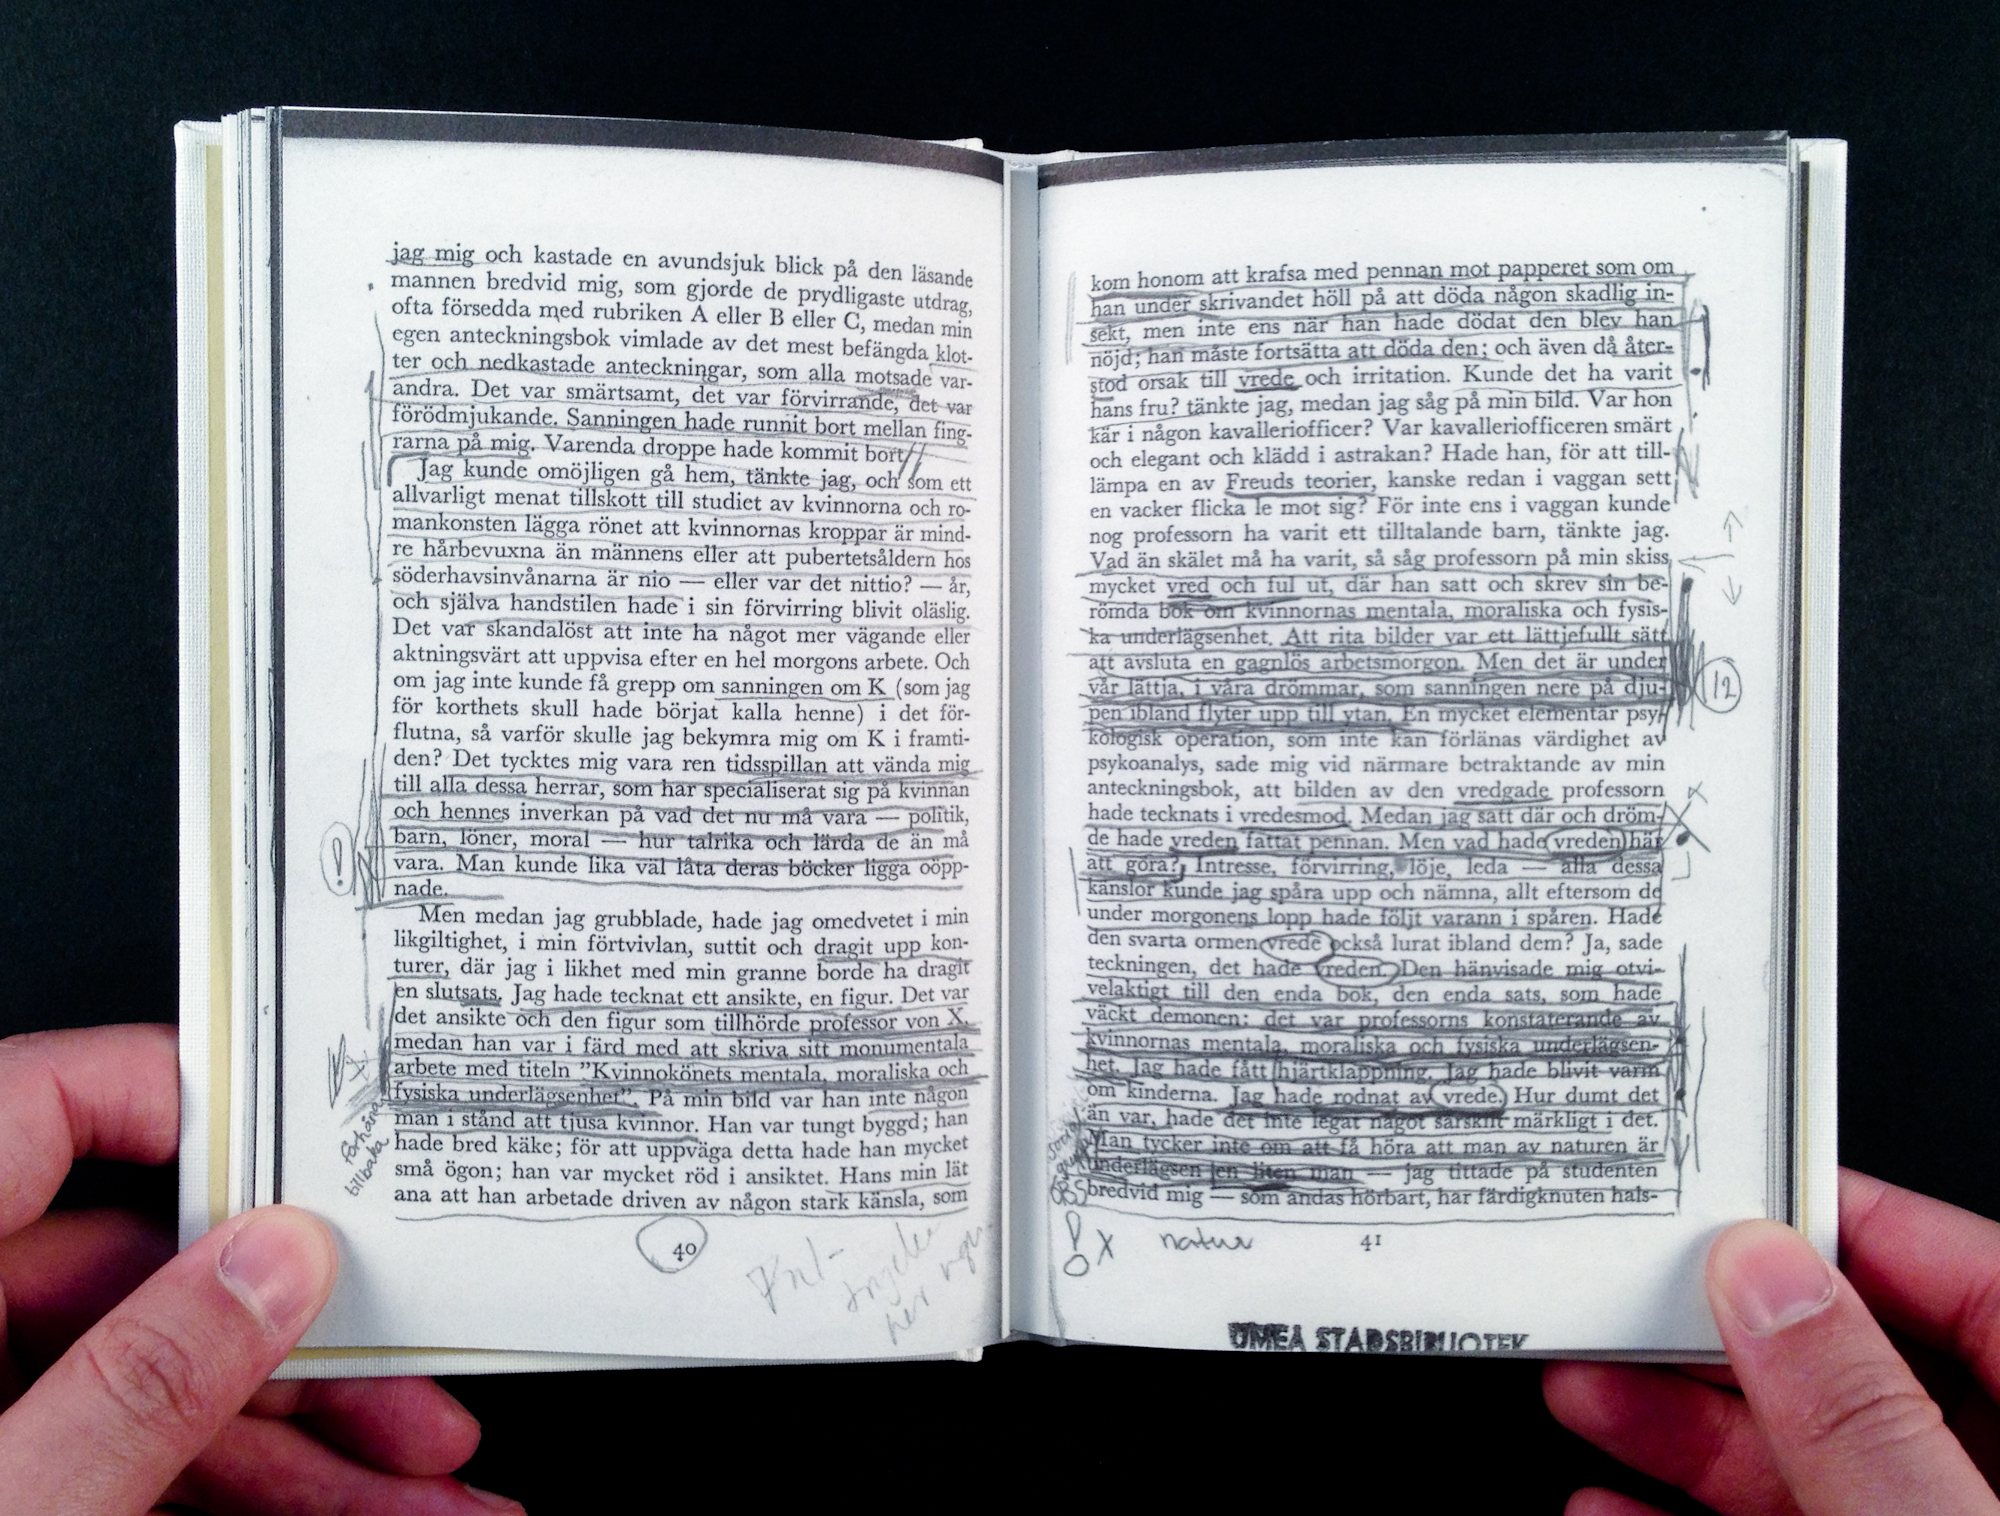 jag mig och kastade en avundsjuk blick på den läsande
mannen bredvid mig, som gjorde de prydligaste utdrag,
ofta försedda med rubriken A eller B eller C, medan min
egen anteckningsbok vimlade av det mest befängda klot-
ter och nedkastade anteckningar, som alla motsade var-
andra. Det var smärtsamt, det var förvirrande, det var
förödmjukande. Sanningen hade runnit bort mellan fing-
rarna på mig. Varenda droppe hade kommit bort
Jag kunde omöjligen gå hem, tänkte jag, och som ett
allvarligt menat tillskott till studiet av kvinnorna och ro-
mankonsten lägga rönet att kvinnornas kroppar är mind-
re hårbevuxna än männens eller att pubertetsåldern hos
söderhavsinvånarna är nio — eller var det nittio? — år,
och själva handstilen hade i sin förvirring blivit oläslig.
Det var skandalöst att inte ha något mer vägande eller
aktningsvärt att uppvisa efter en hel morgons arbete. Och
om jag inte kunde få grepp om sanningen om K (som jag
för korthets skull hade börjat kalla henne) i det för-
flutna, så varför skulle jag bekymra mig om K i framti-
den? Det tycktes mig vara ren tidsspillan att vända mig
till alla dessa herrar, som har specialiserat sig på kvinnan
och hennes inverkan på vad det nu må vara — politik,
barn, löner, moral — hur talrika och lärda de än må
vara. Man kunde lika väl låta deras böcker ligga oöpp-
nade.
Men medan jag grubblade, hade jag omedvetet i min
likgiltighet, i min förtvivlan, suttit och dragit upp kon-
turer, där jag i likhet med min granne borde ha dragit
en slutsats. Jag hade tecknat ett ansikte, en figur. Det var
det ansikte och den figur som tillhörde professor von X,
medan han var i färd med att skriva sitt monumentala
arbete med titeln ”Kvinnokönets mentala, moraliska och
fysiska underlägsenhet”. På min bild var han inte någon
man i stånd att tjusa kvinnor. Han var tungt byggd; han
hade bred käke; för att uppväga detta hade han mycket
små ögon; han var mycket röd i ansiktet. Hans min lät
ana att han arbetade driven av någon stark känsla, som
40
tillbaka
kom honom att krafsa med pennan mot papperet som om
han under skrivandet höll på att döda någon skadlig in-
sekt, men inte ens när han hade dödat den blev han
nöjd; han måste fortsätta att döda den; och även då åter-
stod orsak till vrede och irritation. Kunde det ha varit
hans fru? tänkte jag, medan jag såg på min bild. Var hon
kär i någon kavalleriofficer? Var kavalleriofficeren smärt
och elegant och klädd i astrakan? Hade han, för att till-
lämpa en av Freuds teorier, kanske redan i vaggan sett
en vacker flicka le mot sig? För inte ens i vaggan kunde
nog professorn ha varit ett tilltalande barn, tänkte jag.
Vad än skälet må ha varit, så såg professorn på min skiss
mycket vred och ful ut, där han satt och skrev sin be-
römda bok om kvinnornas mentala, moraliska och fysis-
ka underlägsenhet. Att rita bilder var ett lättjefullt sätt
att avsluta en gagnlös arbetsmorgon. Men det är under
vår lättja, i våra drömmar, som sanningen nere på dju-
pen ibland flyter upp till ytan. En mycket elementär psy-
kologisk operation, som inte kan förlänas värdighet av
psykoanalys, sade mig vid närmare betraktande av min
anteckningsbok, att bilden av den vredgade professorn
hade tecknats i vredesmod. Medan jag satt där och dröm-
de hade vreden fattat pennan. Men vad hade vreden här
att göra? Intresse, förvirring, löje, leda — alla dessa
känslor kunde jag spåra upp och nämna, allt eftersom de
under morgonens lopp hade följt varann i spåren. Hade
den svarta ormen vrede också lurat ibland dem? Ja, sade
teckningen, det hade vreden. Den hänvisade mig otvi-
velaktigt till den enda bok, den enda sats, som hade
väckt demonen: det var professorns konstaterande av
kvinnornas mentala, moraliska och fysiska underlägsen-
het. Jag hade fått hjärtklappning. Jag hade blivit varm
om kinderna. Jag hade rodnat av vrede. Hur dumt det
än var, hade det inte legat något särskilt märkligt i det.
Man tycker inte om att få höra att man av naturen är
underlägsen en liten man — jag tittade på studenten
bredvid mig — som andas hörbart, har färdigknuten hals-
12
OBS
X natur
41
UMEÅ STADSBIBLIOTEK